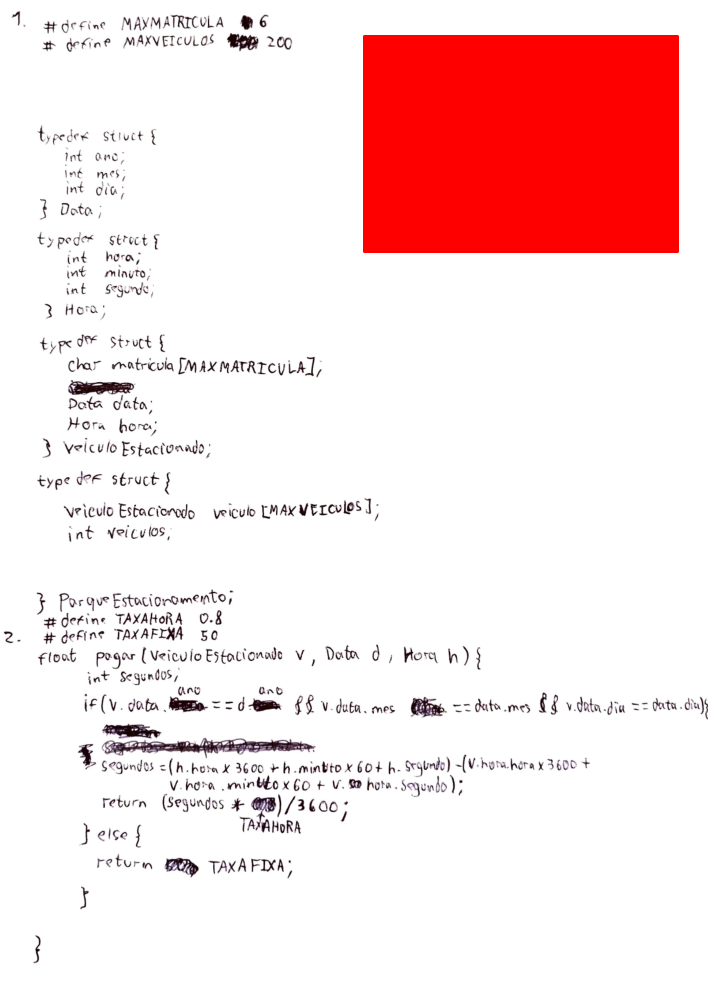 1. #define MAXMATRICULA 6
#define MAXVEICULOS 200
typedef struct {
int ano;
int mes;
int dia;
} Data;
typedef struct {
int hora;
int minuto;
int segundo;
} Hora;
typedef struct {
char matricula [MAXMATRICULA];
Data data;
Hora hora;
} VeiculoEstacionado;
typedef struct {
VeiculoEstacionado veiculo [MAXVEICULOS];
int veiculos;
} ParqueEstacionamento;
#define TAXAHORA 0.8
2. #define TAXAFIXA 50
float pagar (VeiculoEstacionado v, Data d, Hora h) {
int segundos;
if (v.data.ano == d.ano && v.data.mes == data.mes && v.data.dia == data.dia){
segundos = (h.hora x 3600 + h.minuto x 60 + h.segundo) - (v.hora.hora x 3600 +
v.hora.minuto x 60 + v.hora.segundo);
return (segundos * TAXAHORA)/3600;
} else {
return TAXAFIXA;
}
}